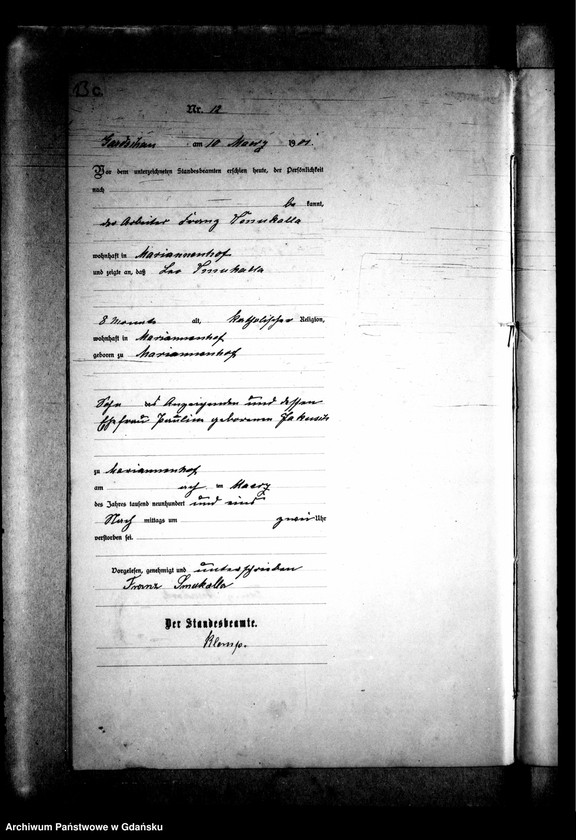 B C.
Nr. 12
am 10 Maerz 1901.
Vor dem unterzeichneten Standesbeamten erschien heute, der Persönlichkeit
nach
be kannt,
der Arbeiter Franz Smukalla
wohnhaft in Mariannenhof
und zeigte an, daß Leo Smukalla
8 Monate alt, katholischer Religion,
wohnhaft in Mariannenhof
geboren zu Mariannenhof
Sohn des Anzeigenden und dessen
Ehefrau Pauline geborenen
zu Mariannenhof
am acht im Maerz
des Jahres tausend neunhundert und eins
Nach mittags um zwei Uhr
verstorben sei.
Vorgelesen, genehmigt und unterschrieben
Franz Smukalla
Der Standesbeamte.
Klemp.
Archiwum Państwowe w Gdańsku